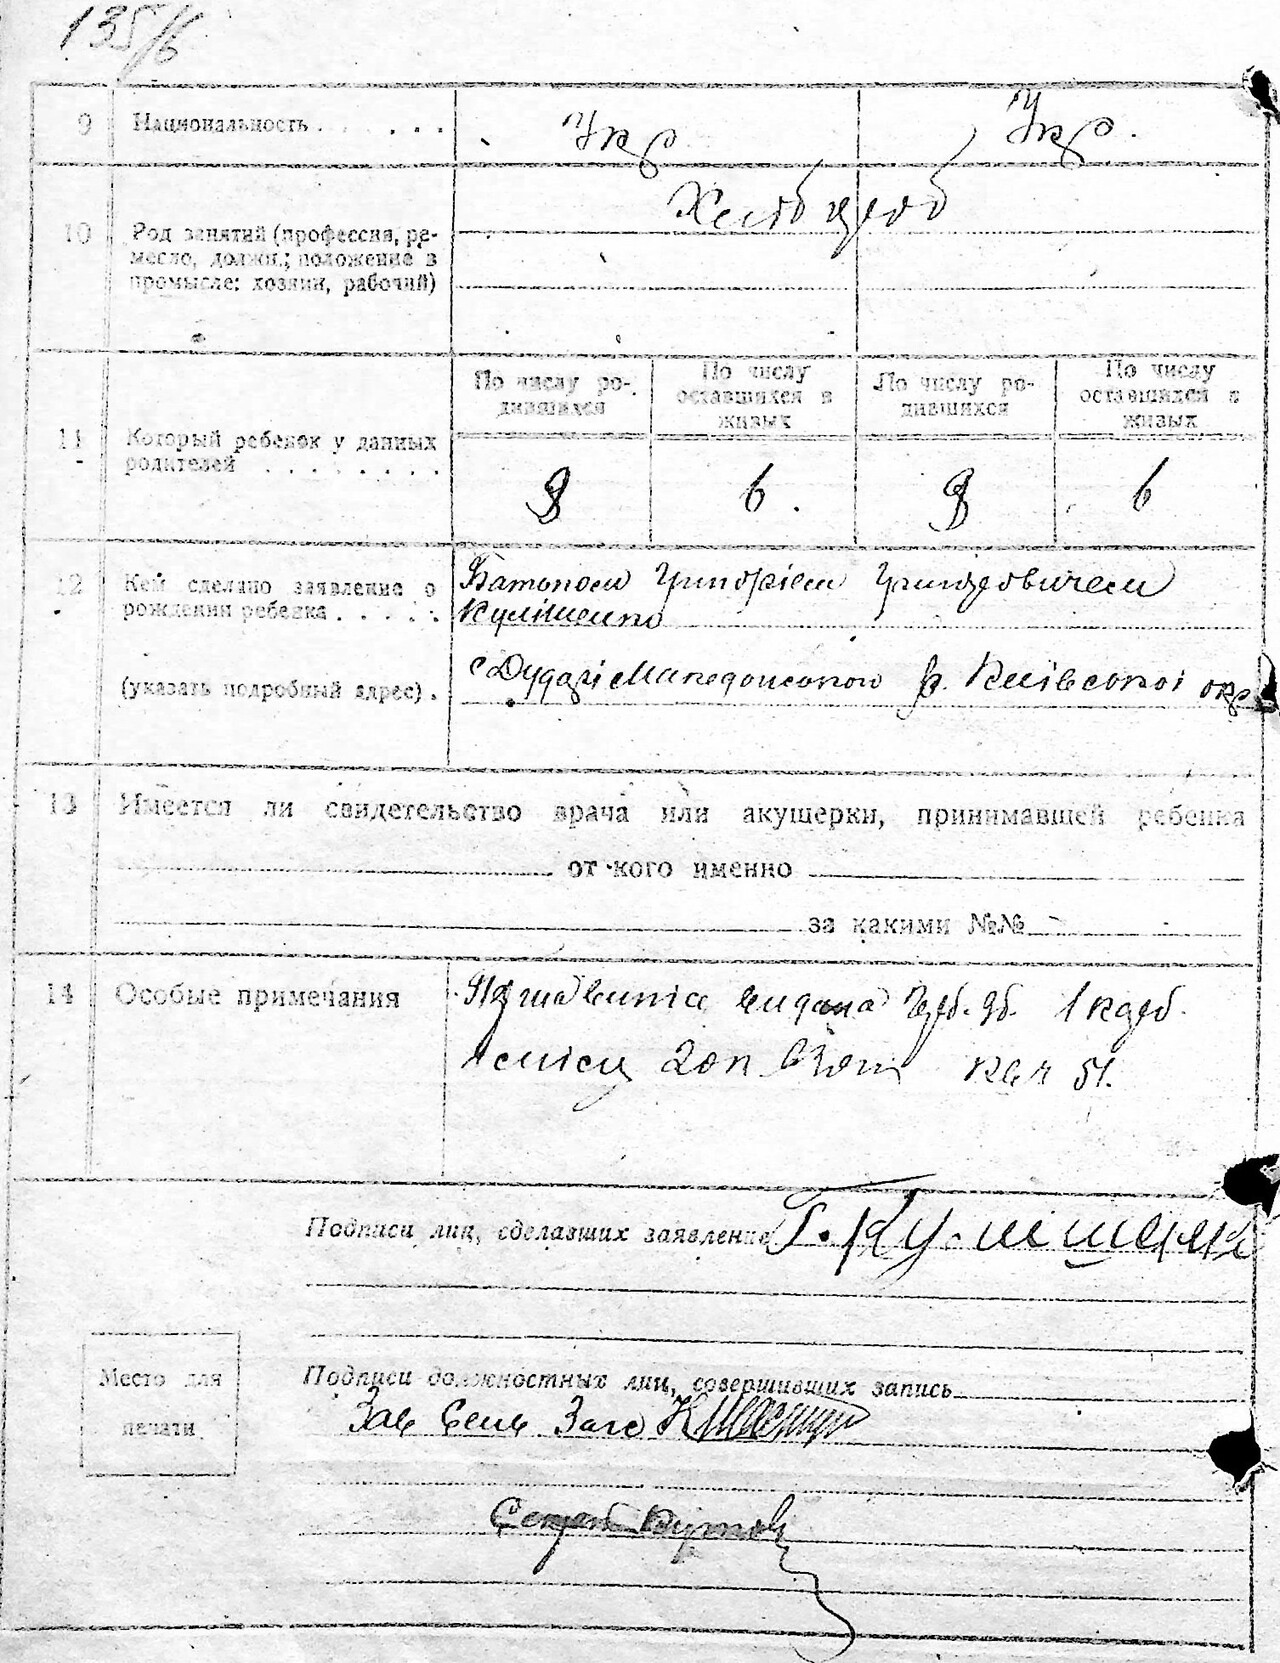 135/6
9 Национальность . . . . . . Укр Укр.
Хлібороб
10 Род занятий (профессия, ре-
месло, должн.; положение в
промысле: хозяин, рабочий)
11 Который ребенок у данных
родителей . . . . . . . .
По числу ро-
дившихся
По числу
оставшихся в
живых
По числу ро-
дившихся
По числу
оставшихся в
живых
8 6. 8 6
12 Кем сделано заявление о
рождении ребенка . . . . .
Батьком Григорієм Григоровичем
Кулішенко
(указать подробный адрес) .
с Дударі Македонського р. Київської окр
13 Имеется ли свидетельство врача или акушерки, принимавшей ребенка
от кого именно
за какими №№
14 Особые примечания
видана
Подписи лиц, сделавших заявление Г. Кулішенко
Подписи должностных лиц, совершивших запись
Зав Загс
Место для
печати
Секрет